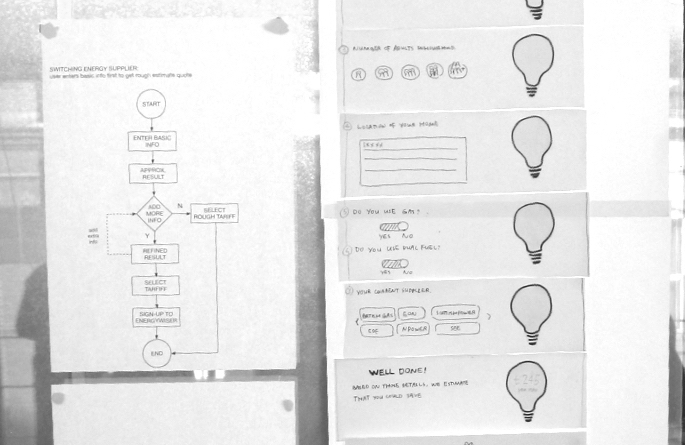 SWITCHING ENERGY SUPPLIER:
user enters basic info first to get rough estimate quote
START
ENTER BASIC
INFO
APPROX.
RESULT
ADD
MORE
INFO
N
SELECT
ROUGH TARIFF
Y
add
extra
info
REFINED
RESULT
SELECT
TARIFF
SIGN-UP TO
ENERGYWISER
END
NUMBER OF ADULTS
LOCATION OF YOUR HOME
DO YOU USE GAS?
YES NO
DO YOU USE DUAL FUEL?
YES NO
YOUR CURRENT SUPPLIER
BRITISH GAS EON SCOTTISHPOWER
EDF NPOWER SSE
WELL DONE!
BASED ON THESE DETAILS, WE ESTIMATE
THAT YOU COULD SAVE